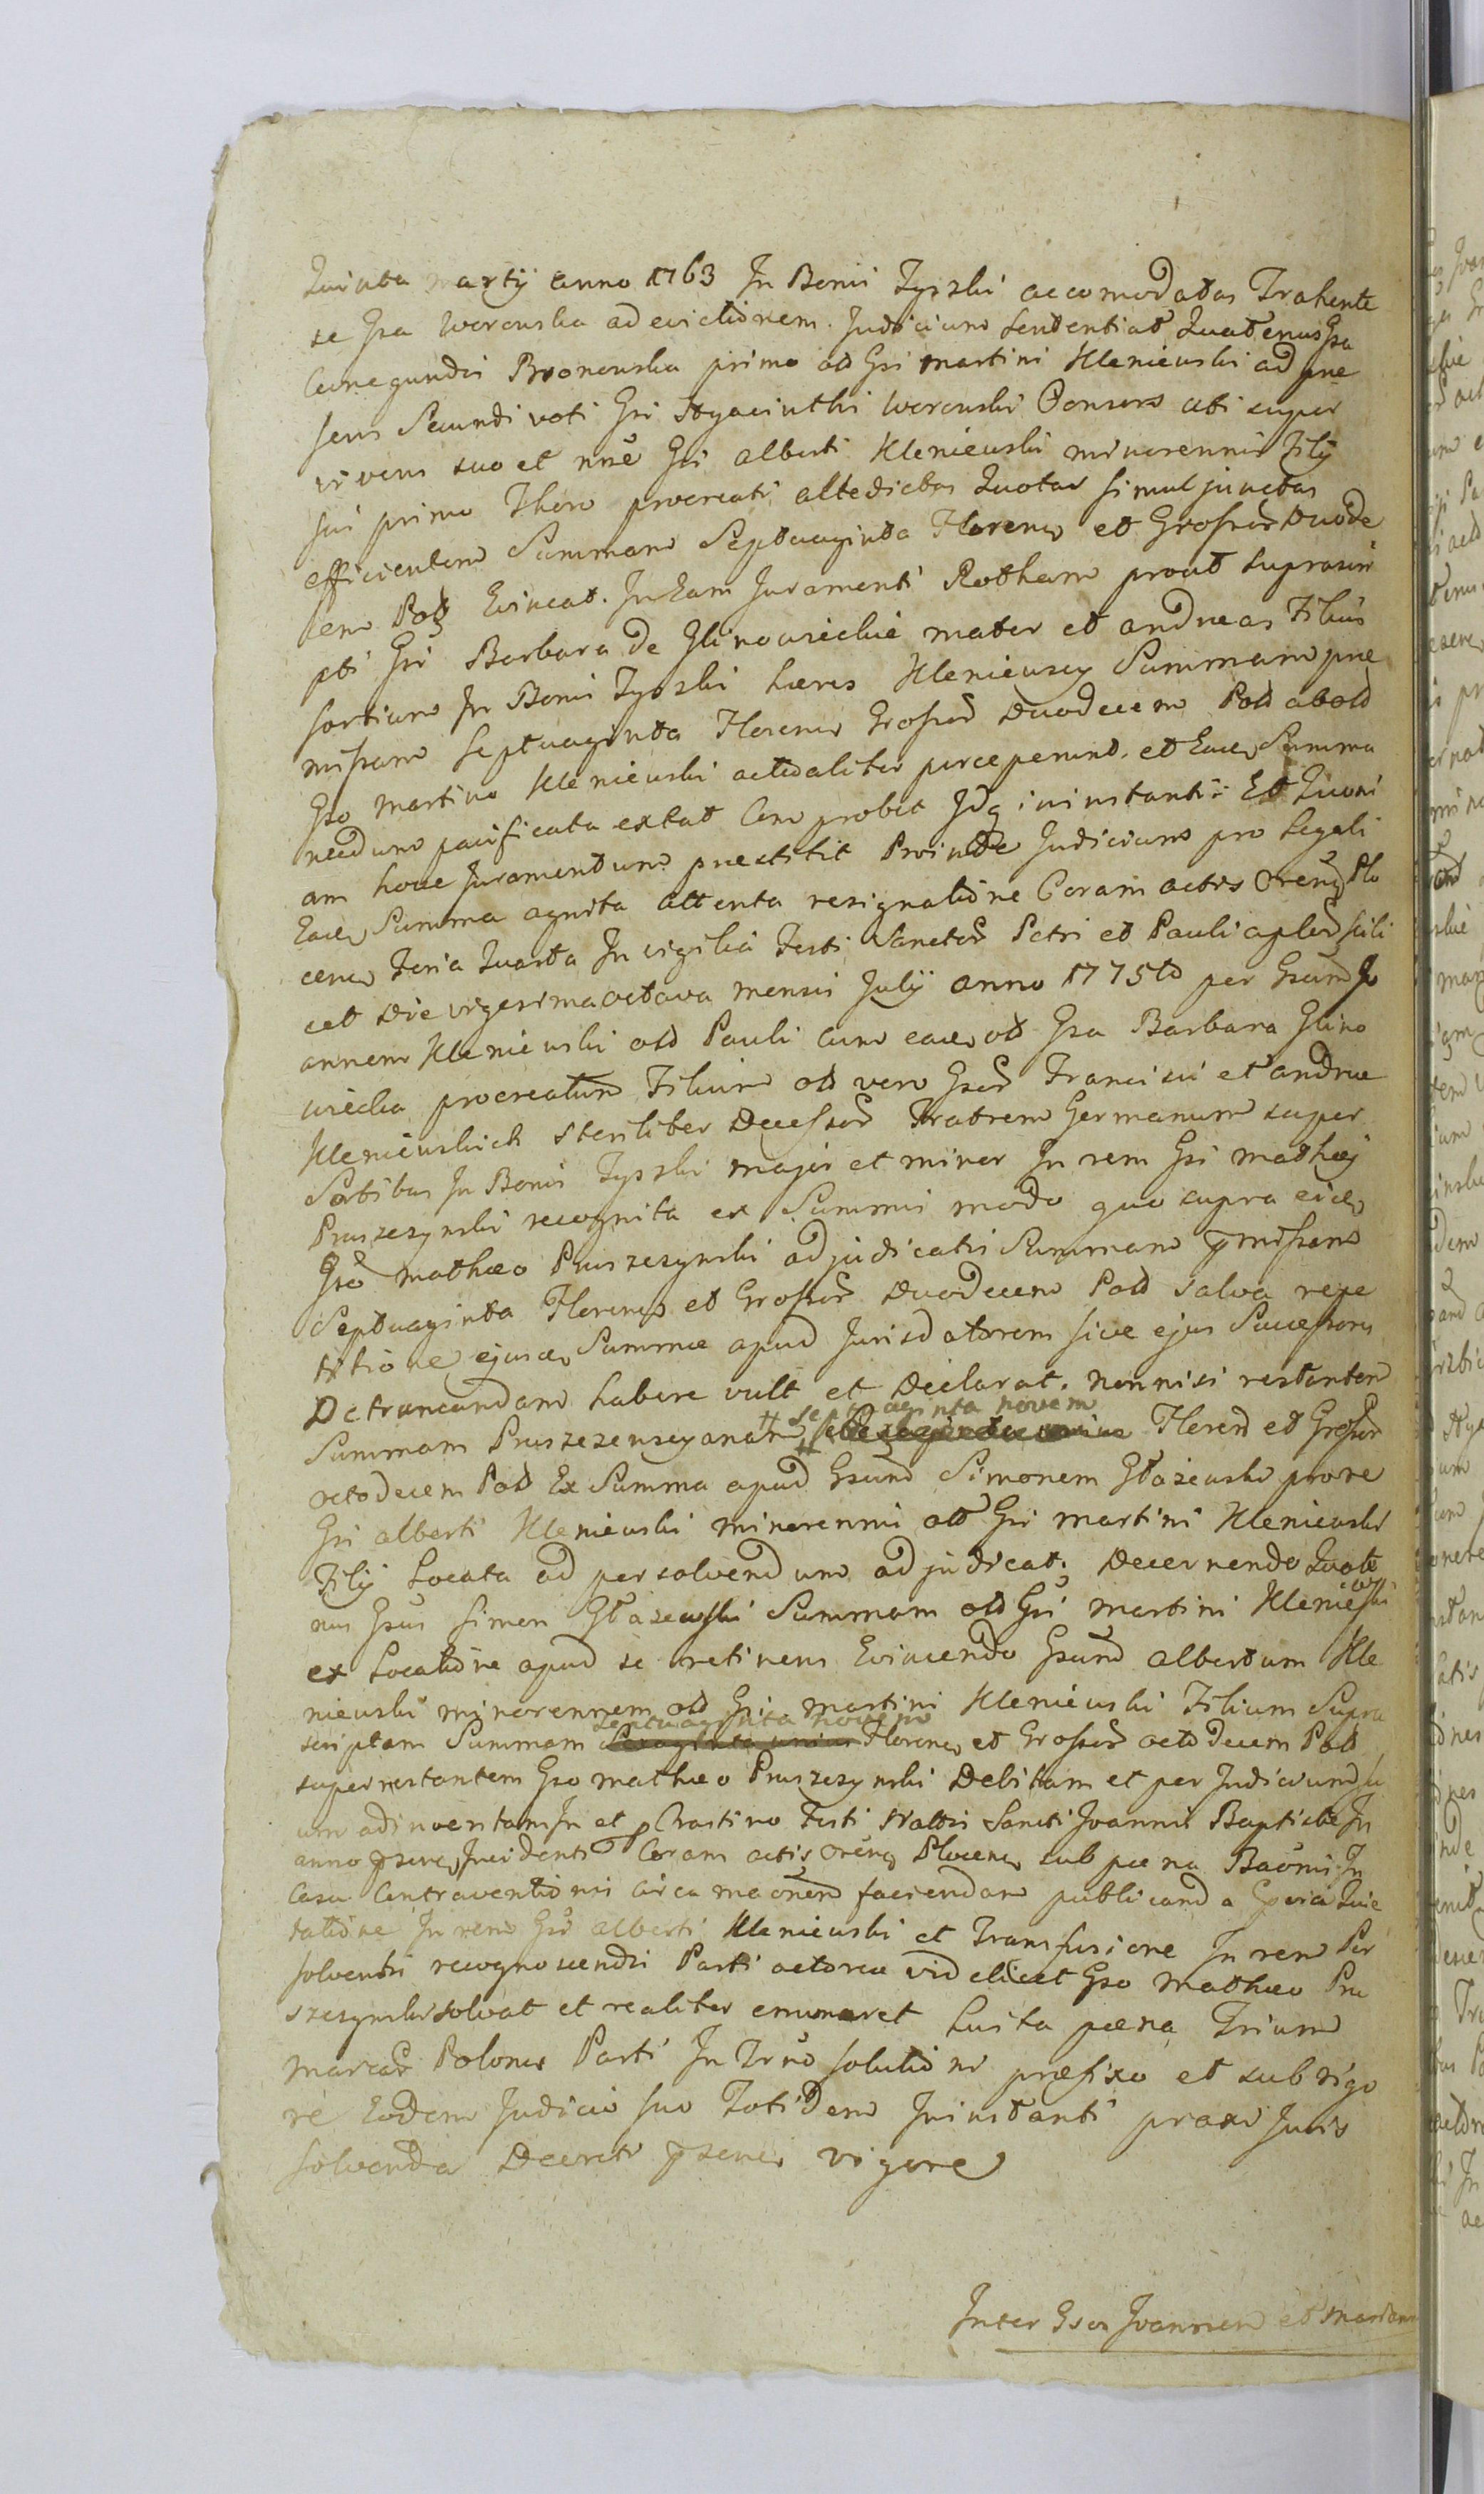 Quinta Martij anno 1763 In Bonis Zyrzki accomodatas Trahente
se Gsa Worowska ad evictionem. Judicium Sententiat Quatenus Gsa
Cunegundis Bronowska primo olt Gsi Martini Kleniewski ad præ
sens Secundi voti Gsi Hyacinthi Worowski Consors uti super
vivens suo et nne Gsi Alberti Kleniewski minorennis Filij
sui primo Thoro procreati altedictas Quotas simul junctas
efficientem Summam Septuaginta Floreno et Grossor Duode
cem Pol Evincat. In Eam Juramenti Rotham prout suprascri
pti Gsi Barbara de Glinowieckie mater et Andreas Filius
sortium In Bonis Zyrzki hæres Kleniewscy Summam præ
missam Septuaginta Floreno Grossor Duodecem Pol ab olt
Gso Martino Kleniewski actualiter perceperunt. et Eade Summa
necdum pacificata extat Com probet Idq ininstanti. Et Quoni
am hocce Juramentum præstitit Proinde Judicium pro Legali
Eade Summa agnita attenta resignatione Coram actis Oren Plo
cen Feria Quarta In vigilia Festi Sanctor Petri et Pauli aplor scili
cet Die vigesima octava mensis Julij anno 1775to per Gsum Jo
annem Kleniewski olt Pauli cum eade olt Gsa Barbara Glino
wiecka procreatum Filium olt vero Gsor Francisci et Andreæ
Kleniewskich steriliter Decessor Fratrem Germanum super
Sortibus In Bonis Zyrzki major et minor In rem Gsi Mathæi
Pruszczynski recognita ex Summis modo quo supra eide
Gso Mathæo Pruszczynski adjudicatis Summam pmissam
Septuaginta Floreno et Grossor Duodecem Pol salva repe
titione ejusde Summæ apud Jurisdatorem sive ejus Successores
Detruncandam habere vult et Declarat. nonnisi restantem
septuaginta novem
Summam Floren et Grossor
octodecem Pol Ex Summa apud Gsum Simonem Głażewski pro re
Gsi Alberti Kleniewski minorennis olt Gsi Martini Kleniewski
Filij Locata ad persolvendum adjudicat; Decernendo Quate
nus Gsus Simon Głazewski Summam olt Gsi Martini Kleniewski
ex Locatione apud se retinens Evincendo Gsum Albertum Kle
niewski minorennem olt Gsi Martini Kleniewski Filium Supra
septuaginta novem
scriptam Summam Floreno et Grossor octodecem Pol
superrestantem Gso Mathæo Pruszczynski Debitam et per Judicium su
um adinventam In et Crastino Festi Nattis Sancti Joannis Baptistæ In
anno psen Incidenti Coram actis Oren Plocen sub pæna Baonis In
Casu Contraventionis circa maonem faciendam publicanda Quie
tatione In rem Gsi Alberti Kleniewski et Transfusione In rem Per
solventis recognoscendis Parti actoreæ videlicet Gso Mathæo Pru
szczynski solvat et realiter enumeret Luita pæna Trium
Marcar Polonis Parti In Trno solutionis præfixo et sub rigo
re Eodem Judicio suo Totidem Ininstanti praxi Juris
solvenda Decreti psenis vigore
Inter Gsos Joannem et Mariann